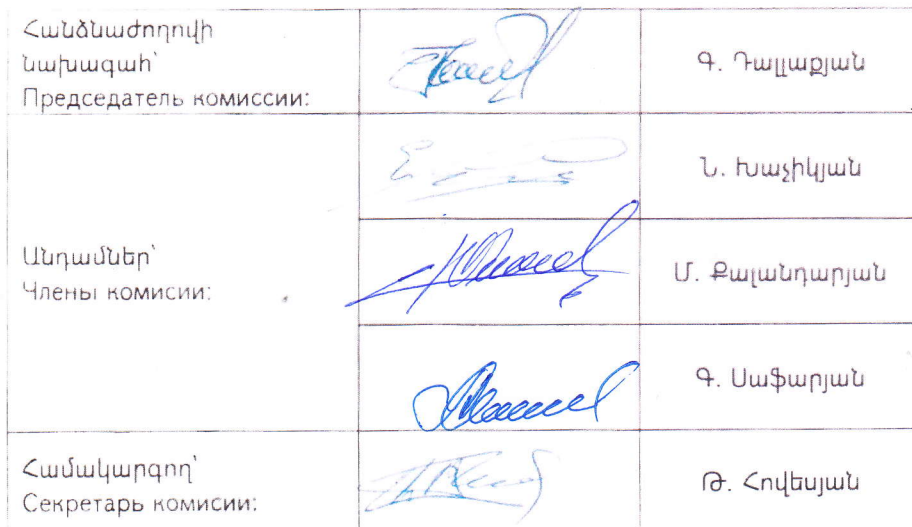 Հանձնաժողովի
նախագահ՝
Председатель комиссии:
Գ. Դալլաքյան
Ն. Խաչիկյան
Անդամներ՝
Члены комисии:
Մ. Քալանդարյան
Գ. Սաֆարյան
Համակարգող՝
Секретарь комисии:
Թ. Հովեսյան